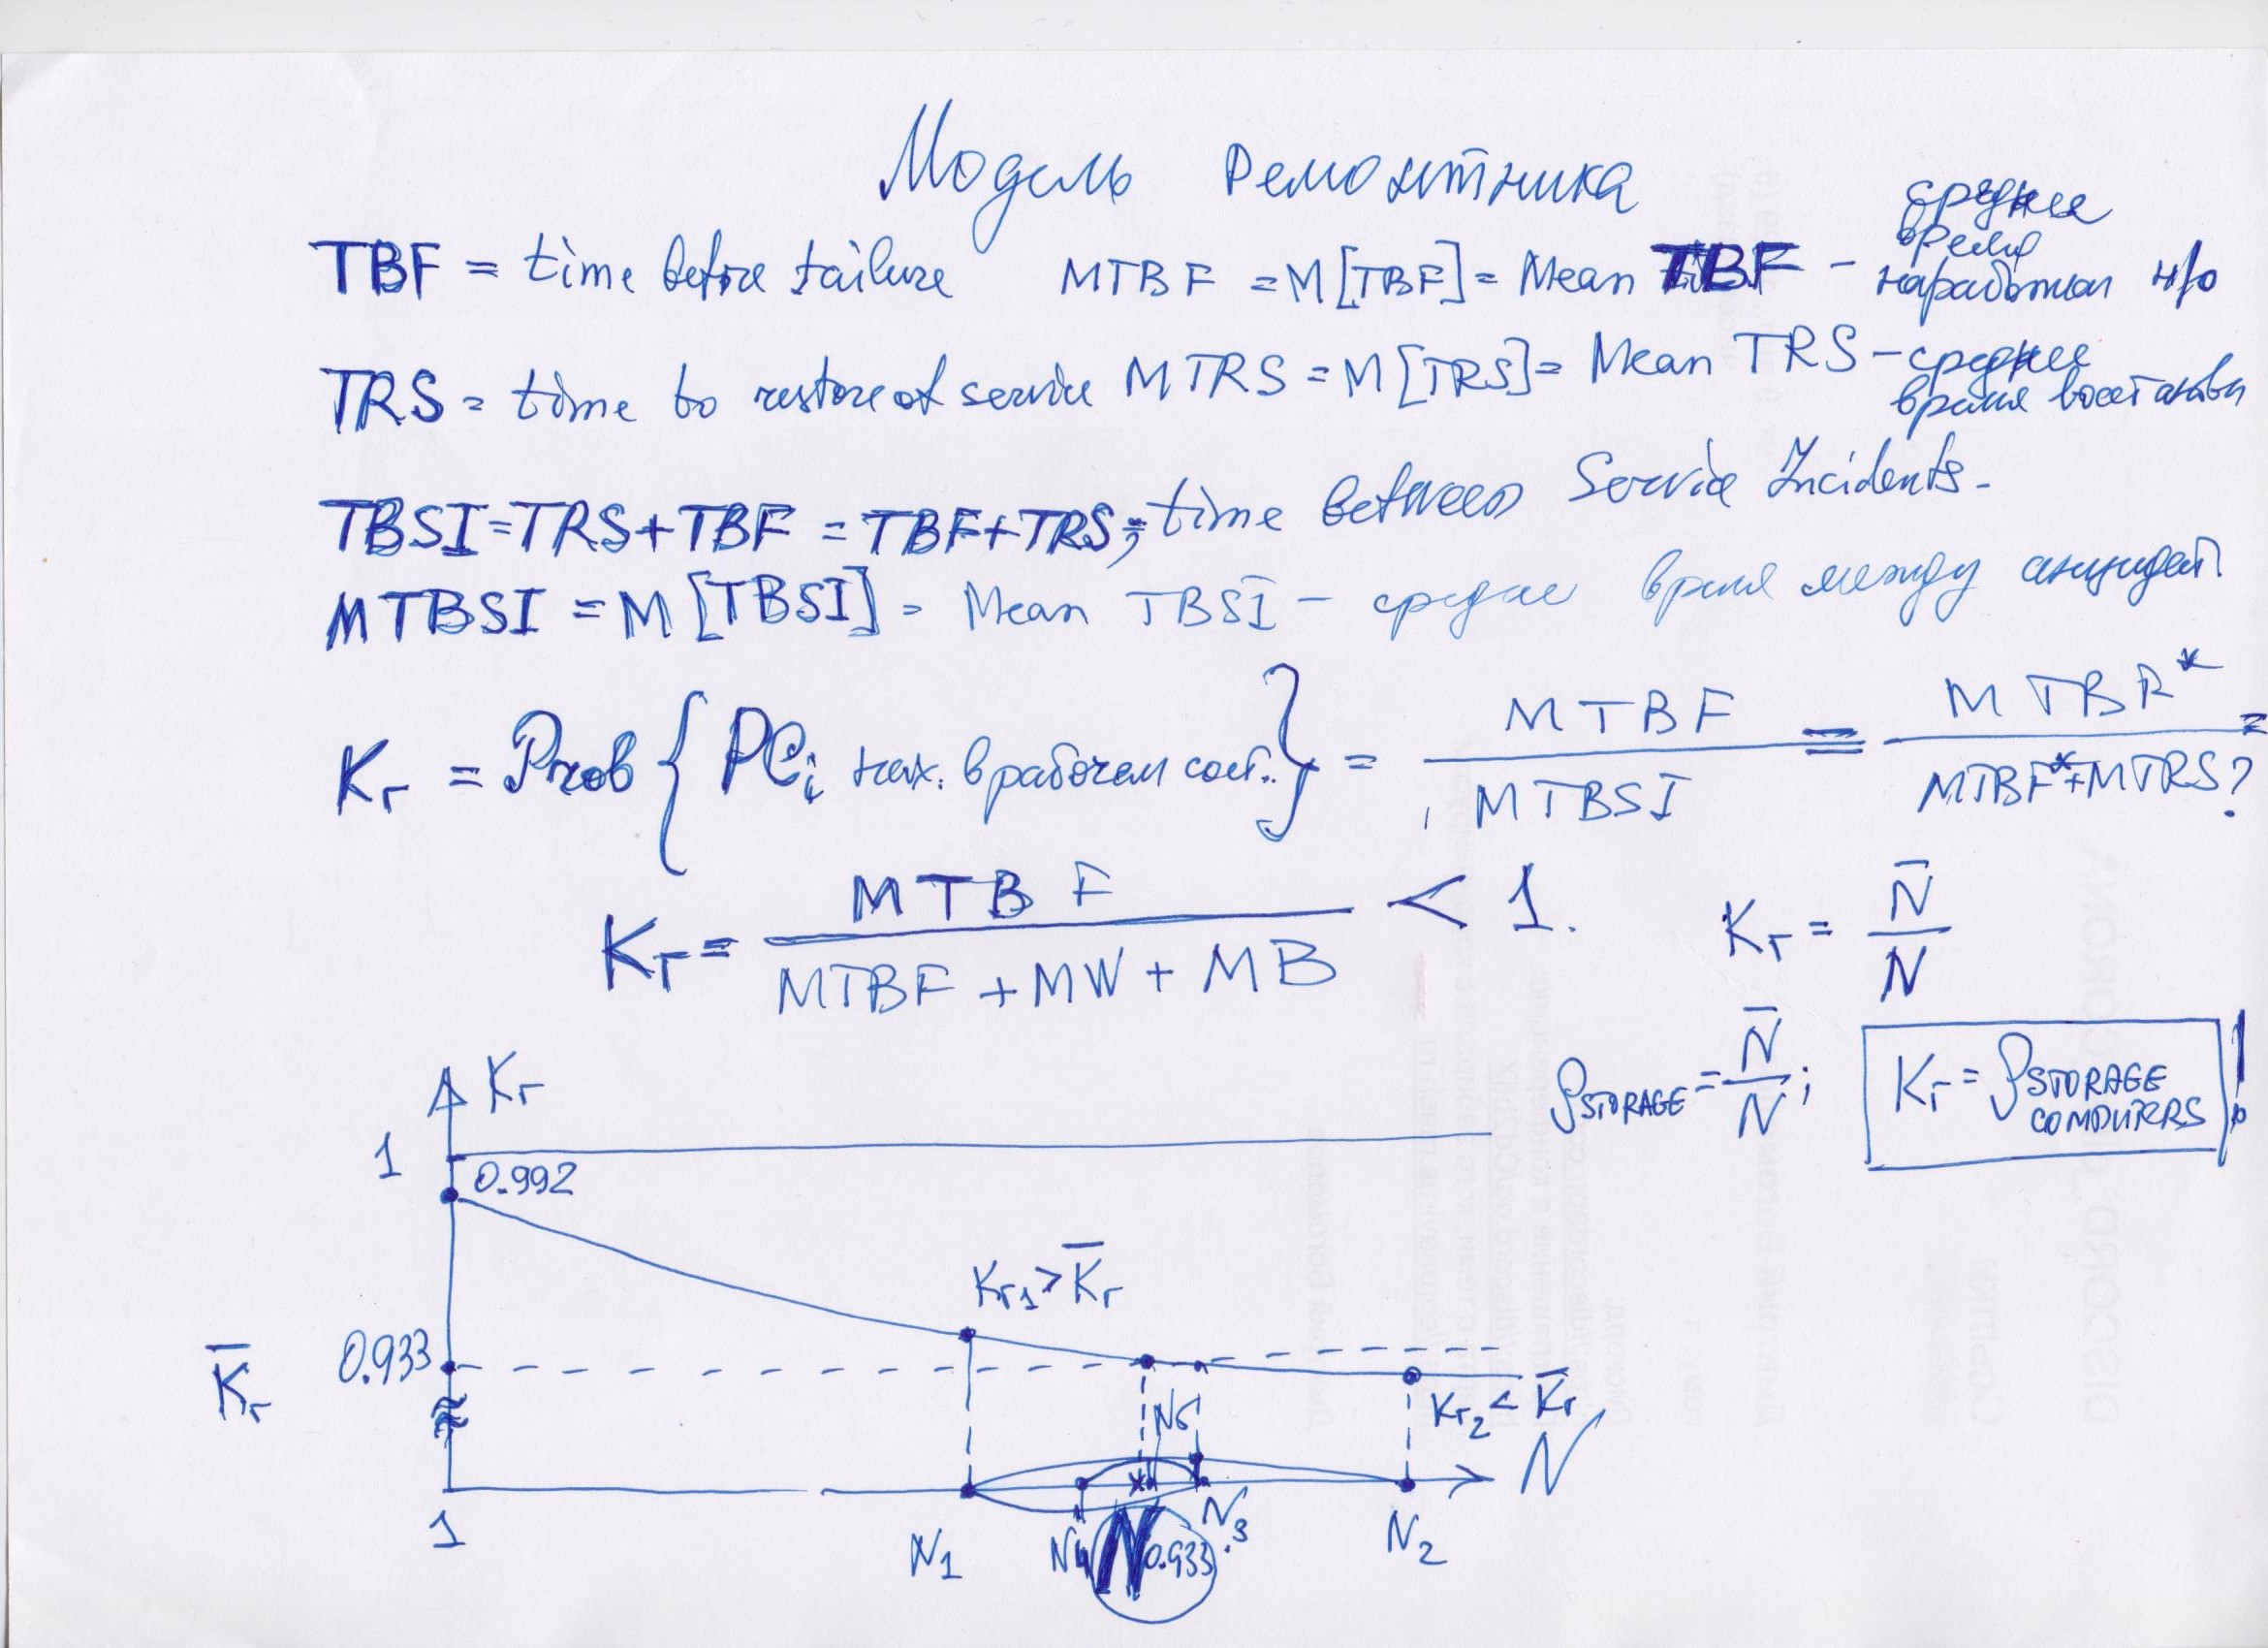 Модель Ремонтника
TBF = time before failure MTBF = M[TBF] = Mean TBF – среднее время наработки н/о
TRS = time to restore of service MTRS = M[TRS] = Mean TRS – среднее время восстановл
TBSI = TRS + TBF = TBF + TRS; time between Service Incidents –
MTBSI = M[TBSI] = Mean TBSI – среднее время между инцидент.
Kг = Prob { PCi нах. в рабочем сост. } = MTBF / MTBSI = MTBF* / MTBF* + MTRS? =
Kг = MTBF / MTBF + MW + MB < 1. Kг = N̄ / N
ρSTORAGE = N̄ / N ; Kг = ρSTORAGE COMPUTERS !
Kг
1
0.992
Kг1 > K̄г
0.933
K̄г
Kг2 < K̄г
N5
N
1
N1
N4
N0.933
N3
N2